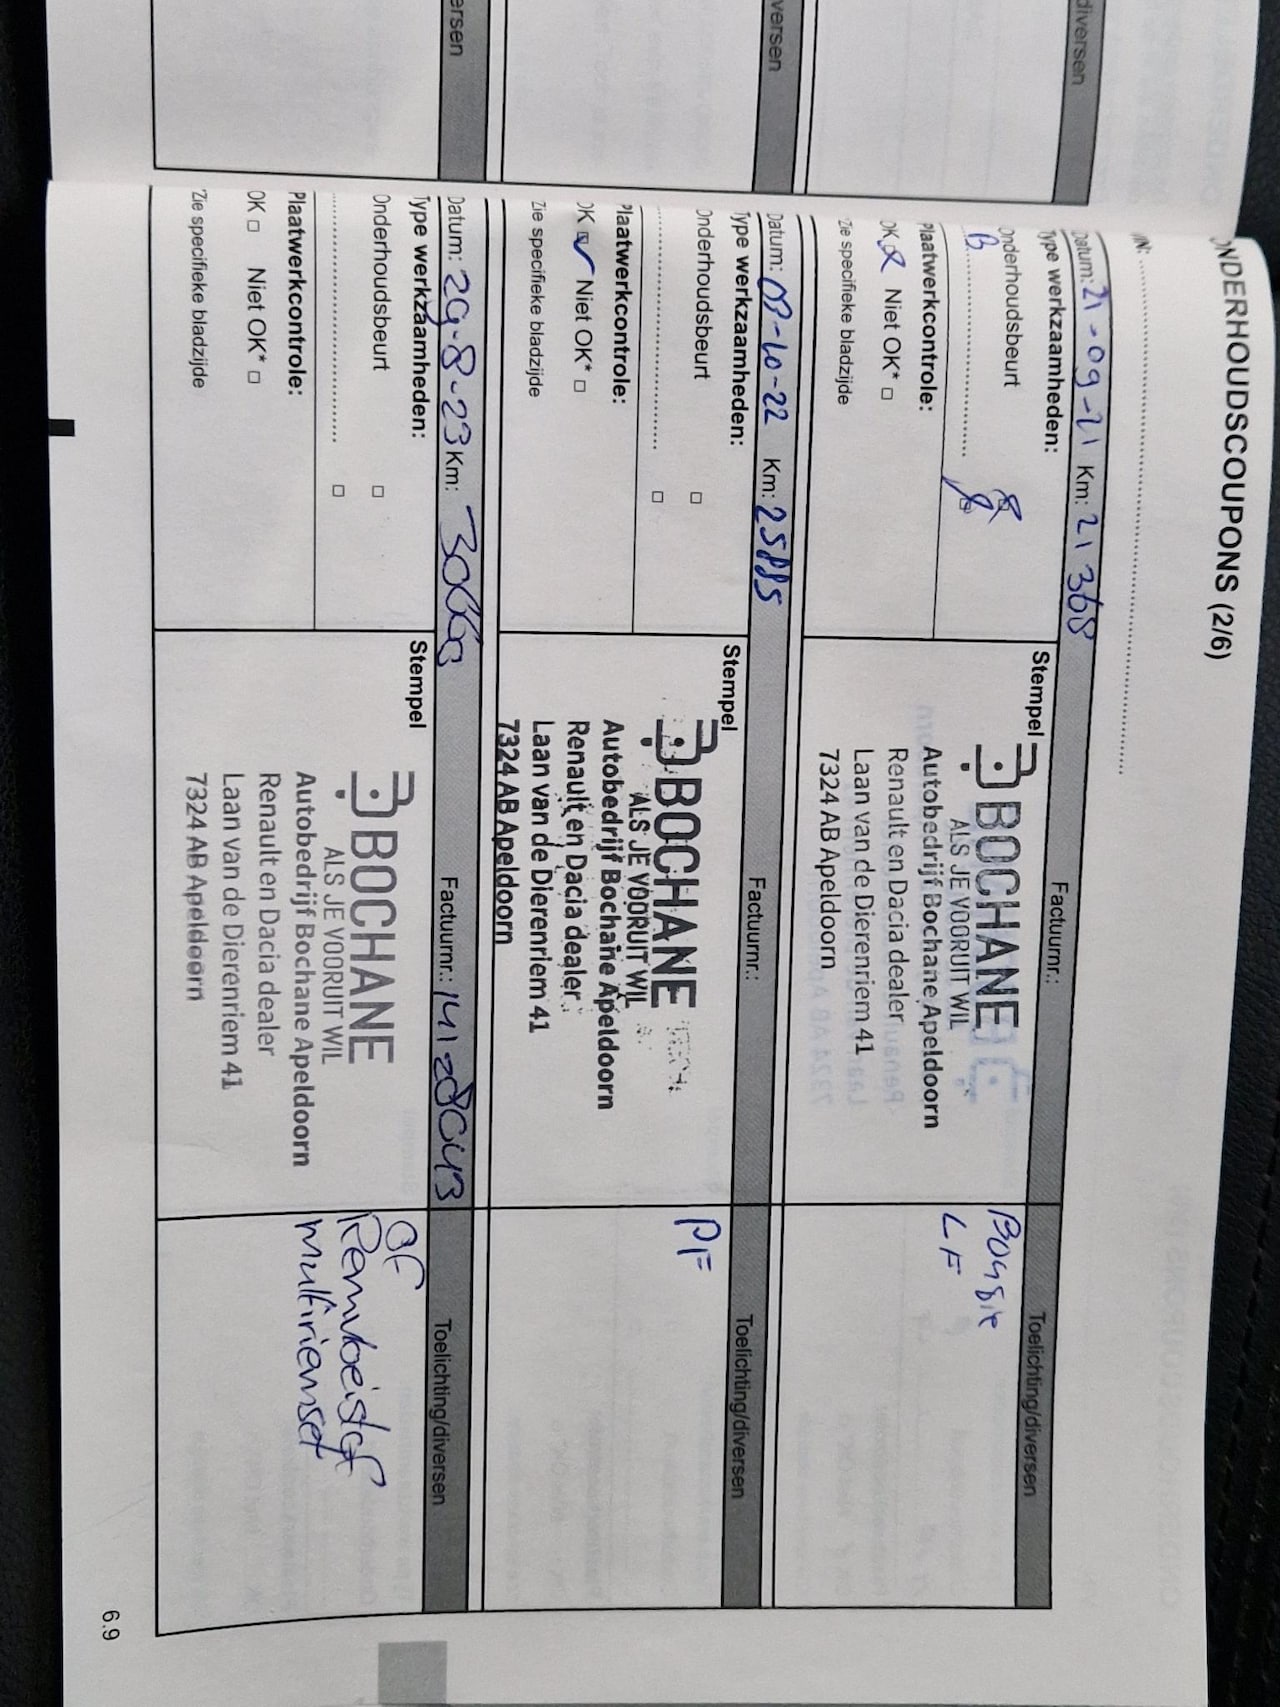 diversen
versen
ersen
ONDERHOUDSCOUPONS (2/6)
VIN:
Datum: 21-09-21 Km: 21 368
Factuurnr.:
Toelichting/diversen
Type werkzaamheden:
Onderhoudsbeurt
B
Plaatwerkcontrole:
OK Niet OK* □
*Zie specifieke bladzijde
Stempel
BOCHANE
ALS JE VOORUIT WIL
Autobedrijf Bochane Apeldoorn
Renault en Dacia dealer
Laan van de Dierenriem 41
7324 AB Apeldoorn
Bougie
LF
Datum: 07-10-22 Km: 25885
Factuurnr.:
Toelichting/diversen
Type werkzaamheden:
Onderhoudsbeurt □
□
Plaatwerkcontrole:
OK ☑ Niet OK* □
Zie specifieke bladzijde
Stempel
BOCHANE
ALS JE VOORUIT WIL
Autobedrijf Bochane Apeldoorn
Renault en Dacia dealer
Laan van de Dierenriem 41
7324 AB Apeldoorn
PF
Datum: 29-8-23 Km:
Factuurnr.: 14128043
Toelichting/diversen
Type werkzaamheden:
Onderhoudsbeurt □
□
Plaatwerkcontrole:
OK □ Niet OK* □
*Zie specifieke bladzijde
Stempel
BOCHANE
ALS JE VOORUIT WIL
Autobedrijf Bochane Apeldoorn
Renault en Dacia dealer
Laan van de Dierenriem 41
7324 AB Apeldoorn
Remvloeistof
multiriemset
6.9